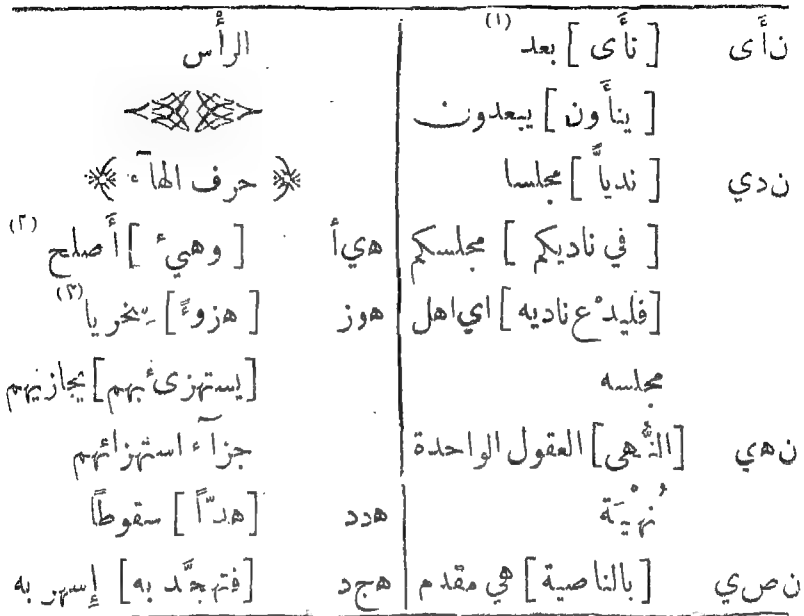 نأى [ نأَى ] بعد (١)
[ ينأَون ] يبعدون
ندي [ نديًّا ] مجلسا
[ في ناديكم ] مجلسكم
[فليدْع ناديه ] اي اهل
مجلسه
نهي [النُّهى] العقول الواحدة
نُهْيَة
نصي [ بالناصية ] هي مقدم
الرأْس
﴿ حرف الهآء ﴾
هيأ [ وهيء ] أَصلح (٢)
هوز [ هزوءً ] سِخريا (٣)
[يستهزىء بهم] يجازيهم
جزآء استهزائهم
هدد [ هدًّا ] سقوطاً
هجد [ فتهجَّد به ] إِسهر به